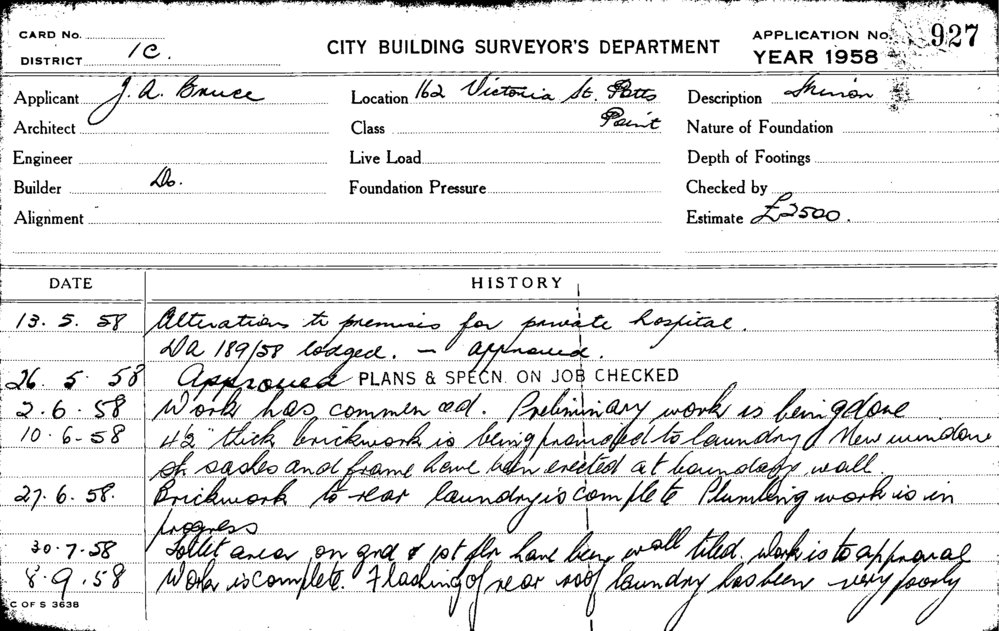 CARD No.
DISTRICT 1C.
CITY BUILDING SURVEYOR'S DEPARTMENT
APPLICATION No. 927
YEAR 1958
Applicant J. A. Bruce
Location 162 Victoria St. Potts
Point
Description
Architect
Class
Nature of Foundation
Engineer
Live Load
Depth of Footings
Builder Do.
Foundation Pressure
Checked by
Alignment
Estimate £2500.
DATE
HISTORY
13. 5. 58 Alterations to premises for private hospital.
DA 189/58 lodged. – approved.
26. 5. 58 Approved PLANS & SPECN. ON JOB CHECKED
2. 6. 58 Work has commenced. Preliminary work is being done
10. 6. 58 4½" thick brickwork is being provided to laundry New window
sashes and frame have been erected at boundary wall.
27. 6. 58. Brickwork to rear laundry is complete Plumbing work is in
progress
30. 7. 58 Toilet areas on grd & 1st flr have been wall tiled. Work is to approval
8. 9. 58 Work is complete. Flashing of rear roof laundry has been very poorly
C OF S 3638